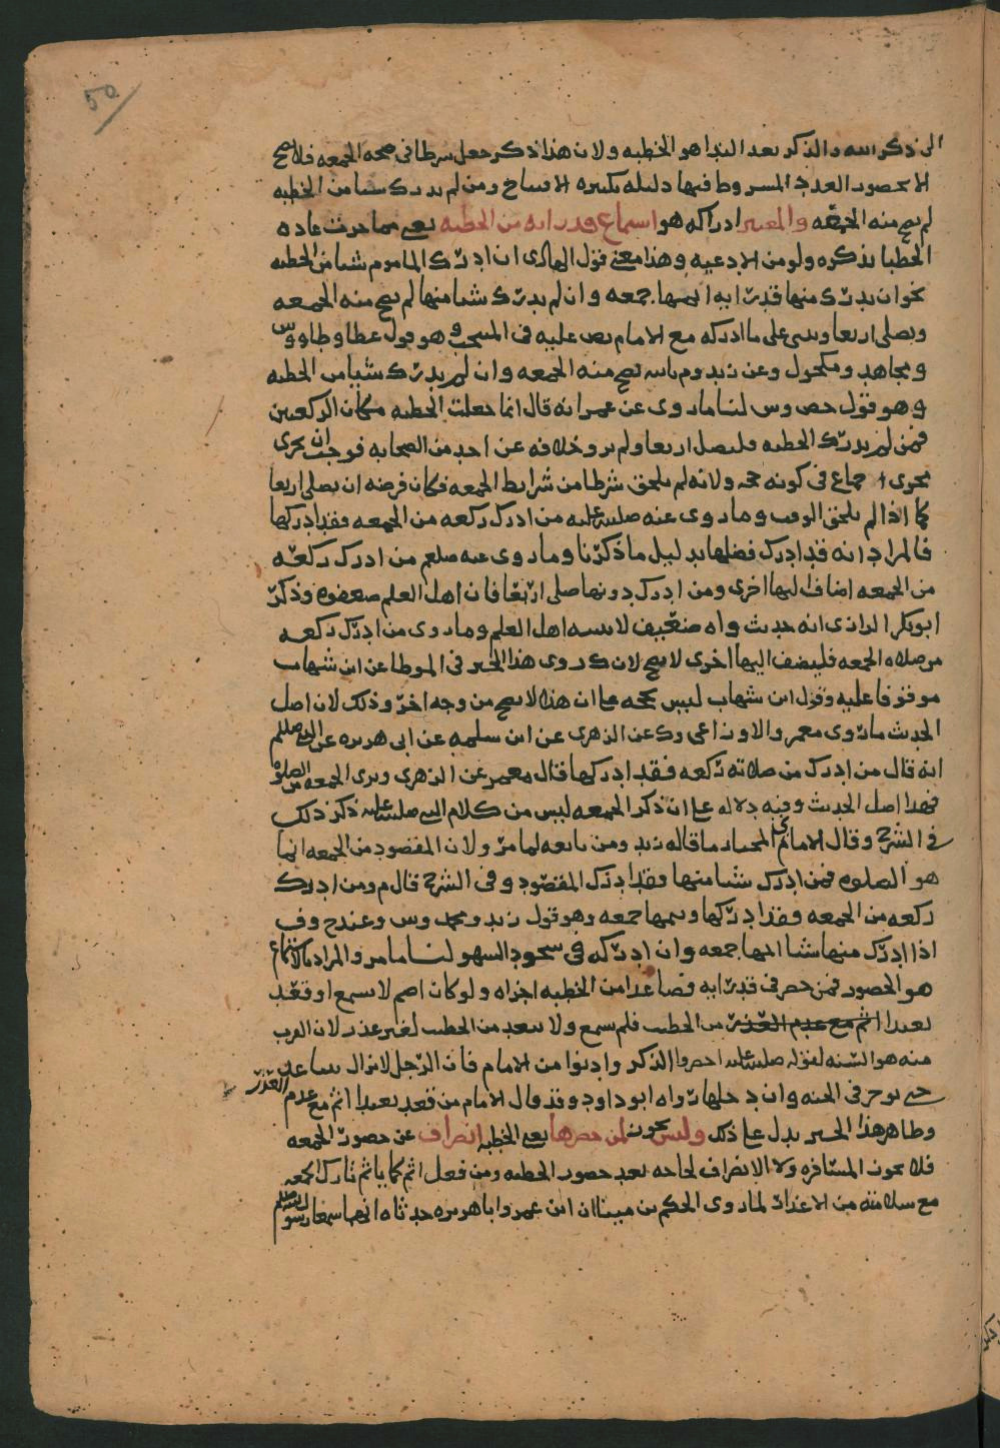 50
الى ذكر الله والذكر بعد الندا هو الخطبه ولان هذا ذكر جعل شرطا في صحه الجمعه فلا يصح
الا بحضور العدد المشروط فيها دليله تكبيره الافتتاح ومن لم يدرك شيا من الخطبه
لم يصح منه الجمعه والمعتبر ادراكه هو استماع قدر ايه من الخطبه يعني مما جرت عاده
الخطبا بذكره ولو من الادعيه وهذا معنى قول الهادى ان ادرك الماموم شيا من الخطبه
نحو ان يدرك منها قدر ايه اتمها جمعه وان لم يدرك شيا منها لم يصح منه الجمعه
ويصلى اربعا ويبنى على ما ادركه مع الامام نص عليه في المنتخب وهو قول عطا وطاووس
ومجاهد ومكحول وعن زيد وم بالله تصح منه الجمعه وان لم يدرك شيا من الخطبه
وهو قول حص وس لنا ما روى عن عمر انه قال انما جعلت الخطبه مكان الركعتين
فمن لم يدرك الخطبه فليصل اربعا ولم يرو خلافه عن احد من الصحابه فوجب ان يجرى
مجرى الاجماع في كونه حجه ولانه لم يلحق شرطا من شرايط الجمعه فكان فرضه ان يصلى اربعا
كما اذا لم يلحق الوقت وما روى عنه صلى الله عليه من ادرك ركعه من الجمعه فقد ادركها
فالمراد انه قد ادرك فضلها بدليل ما ذكرنا وما روى عنه صلعم من ادرك ركعه
من الجمعه اضاف اليها اخرى ومن ادرك دونها صلى اربعا فان اهل العلم ضعفوه وذكر
ابو بكر الرازى انه حديث واه ضعيف لا يثبته اهل العلم وما روى من ادرك ركعه
من صلاه الجمعه فليضف اليها اخرى لا يصح لان ك روى هذا الخبر في الموطا عن ابن شهاب
موقوفا عليه وقول ابن شهاب ليس بحجه على ان هذا لا يصح من وجه اخر وذلك لان اصل
الحديث ما روى معمر والاوزاعى وك عن الزهرى عن ابى سلمه عن ابى هريره عن النبي صللم
انه قال من ادرك من صلاته ركعه فقد ادركها قال معمر عن الزهرى ونرى الجمعه من الصلوه
فهذا اصل الحديث وفيه دلاله على ان ذكر الجمعه ليس من كلام النبي صلى الله عليه ذكر ذلك
في الشرح وقال الامام ى المختار ما قاله زيد ومن تابعه لما مر ولان المقصود من الجمعه انما
هو الصلوه فمن ادرك شيا منها فقد ادرك المقصود وفي الشرح قال م ومن ادرك
ركعه من الجمعه وقد ادركها ويتمها جمعه وهو قول زيد ومحمد وس وعند ح وف
اذا ادرك منها شيا اتمها جمعه وان ادركه في سجود السهو لنا ما مر والمراد بالاستماع
هو الحضور فمن حضر في قدر ايه فصاعدا من الخطبه اجزاه ولو كان اصم لا يسمع او قعد
بعيدا اثم مع عدم العذر من الخطيب فلم يسمع ولا يبعد من الخطيب لغير عذر لان القرب
منه هو السنه لقوله صلى الله عليه احضروا الذكر وادنوا من الامام فان الرجل لا يزال يتباعد
حتى يوخر في الجنه وان دخلها رواه ابو داود وقد قال الامام من قعد بعيدا اثم مع عدم العذر
وظاهر هذا الخبر يدل على ذلك وليس يجوز لمن حضرها يعني الخطبه انصراف عن حضور الجمعه
فلا يجوز المسافره ولا الانصراف لحاجه بعد حضور الخطبه ومن فعل اثم كما ياثم تارك الجمعه
مع سلامته من الاعذار لما روى الحكم بن مينا ان ابن عمر وابا هريره حدثاه انهما سمعا رسول الله صللم